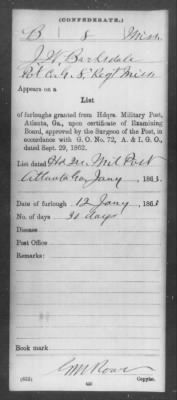 (CONFEDERATE.)
B 8 Miss
J. W. Barksdale
Pvt Co. B, 8" Regt Miss
Appears on a
List
of furloughs granted from Hdqrs. Military Post,
Atlanta, Ga., upon certificate of Examining
Board, approved by the Surgeon of the Post, in
accordance with G. O. No. 72, A. & I. G. O.,
dated Sept. 29, 1862.
List dated Hd Qrs Mil Post
Atlanta Ga Jany, 1863.
Date of furlough 12 Jany, 1863
No. of days 30 days
Disease
Post Office
Remarks:
Book mark
Copyist.